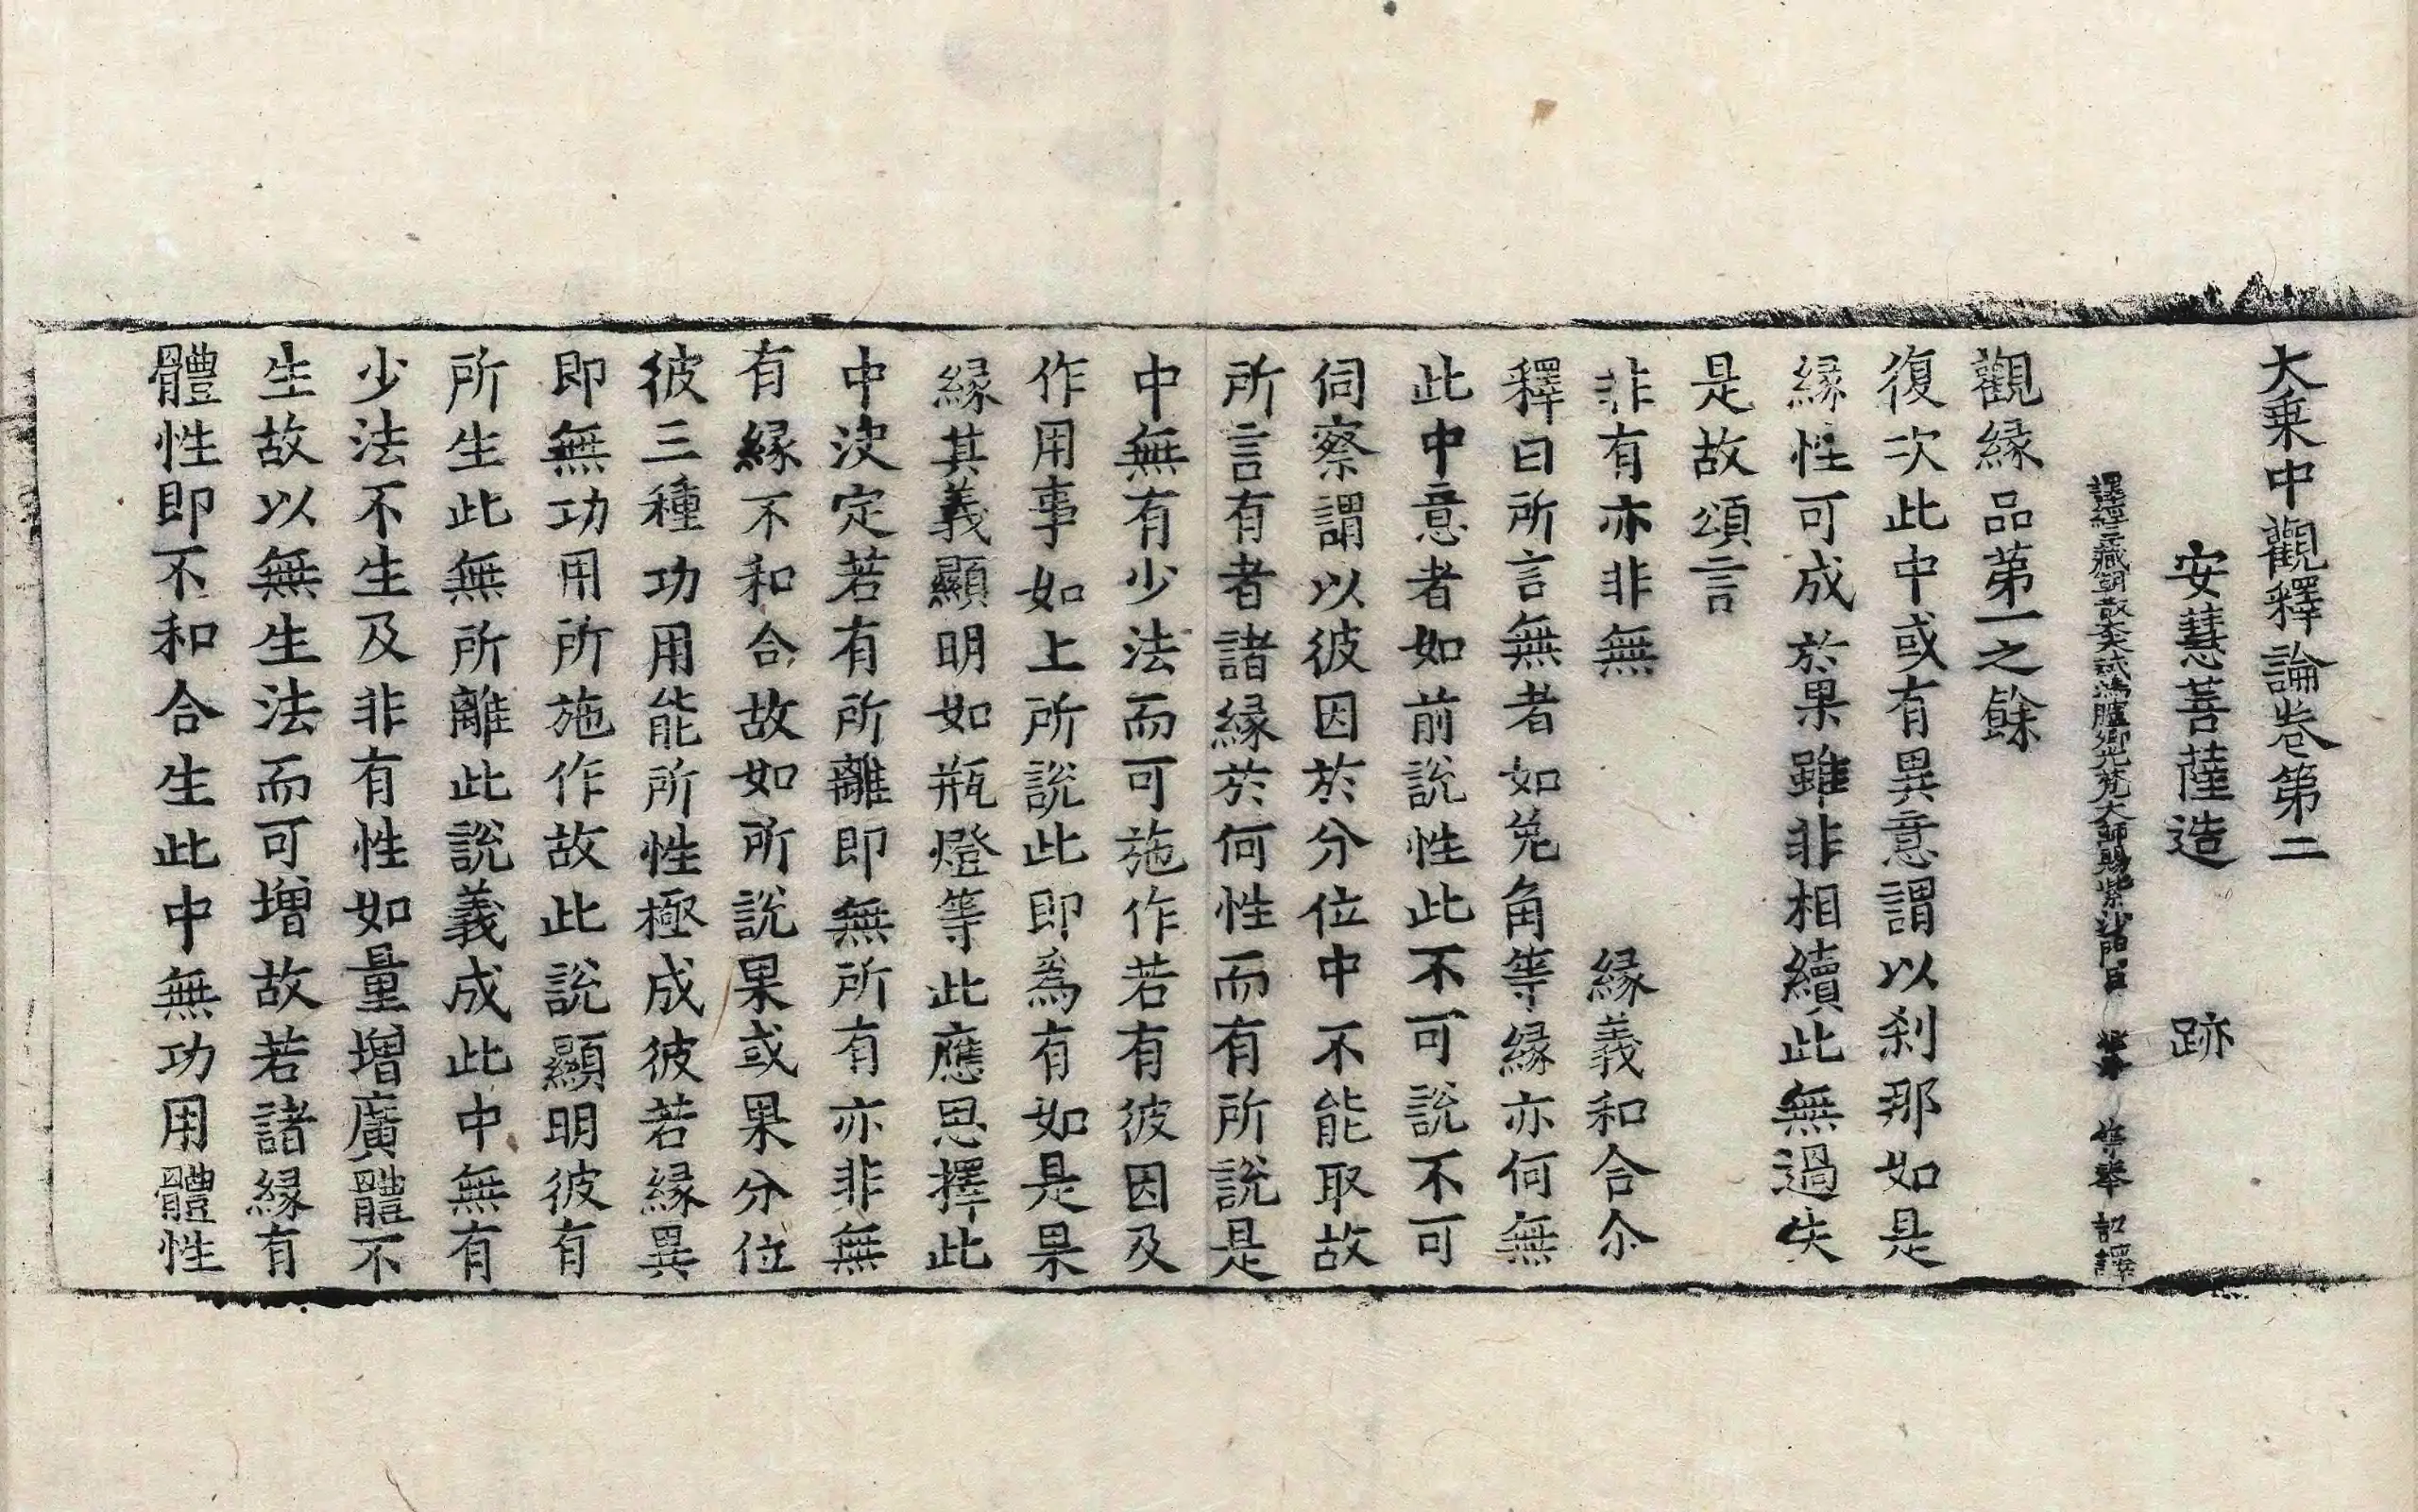 大乗中觀釋論卷第二
安慧菩薩造　跡
譯經三藏朝散大夫試鴻臚卿光梵大師賜紫沙門臣　等奉　詔譯
觀縁品第一之餘
復次此中或有異意謂以刹那如是
縁性可成於果雖非相續此無過失
是故頌言
非有亦非無　縁義和合尒
釋曰所言無者如兔角等縁亦何無
此中意者如前說性此不可說不可
伺察謂以彼因於分位中不能取故
所言有者諸縁於何性而有所說是
中無有少法而可施作若有彼因及
作用事如上所說此即爲有如是果
縁其義顯明如瓶燈等此應思擇此
中決定若有所離即無所有亦非無
有縁不和合故如所說果或果分位
彼三種功用能所性極成彼若縁異
即無功用所施作故此說顯明彼有
所生此無所離此說義成此中無有
少法不生及非有性如量增廣體不
生故以無生法而可增故若諸縁有
體性即不和合生此中無功用體性